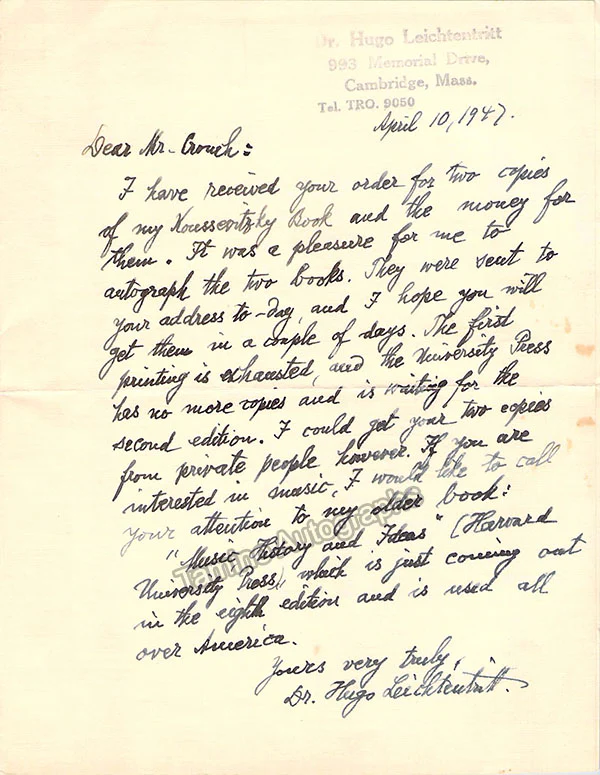 Dr. Hugo Leichtentritt
993 Memorial Drive,
Cambridge, Mass.
Tel. TRO. 9050
April 10, 1947.
Dear Mr. Crouch:
I have received your order for two copies
of my Koussevitzky Book and the money for
them. It was a pleasure for me to
autograph the two books. They were sent to
your address to-day, and I hope you will
get them in a couple of days. The first
printing is exhausted, and the University Press
has no more copies and is waiting for the
second edition. I could get your two copies
from private people however. If you are
interested in music, I would like to call
your attention to my older book:
"Music, History and Ideas" (Harvard
University Press) which is just coming out
in the eighth edition and is used all
over America.
Yours very truly,
Dr. Hugo Leichtentritt.
Tamino Autographs